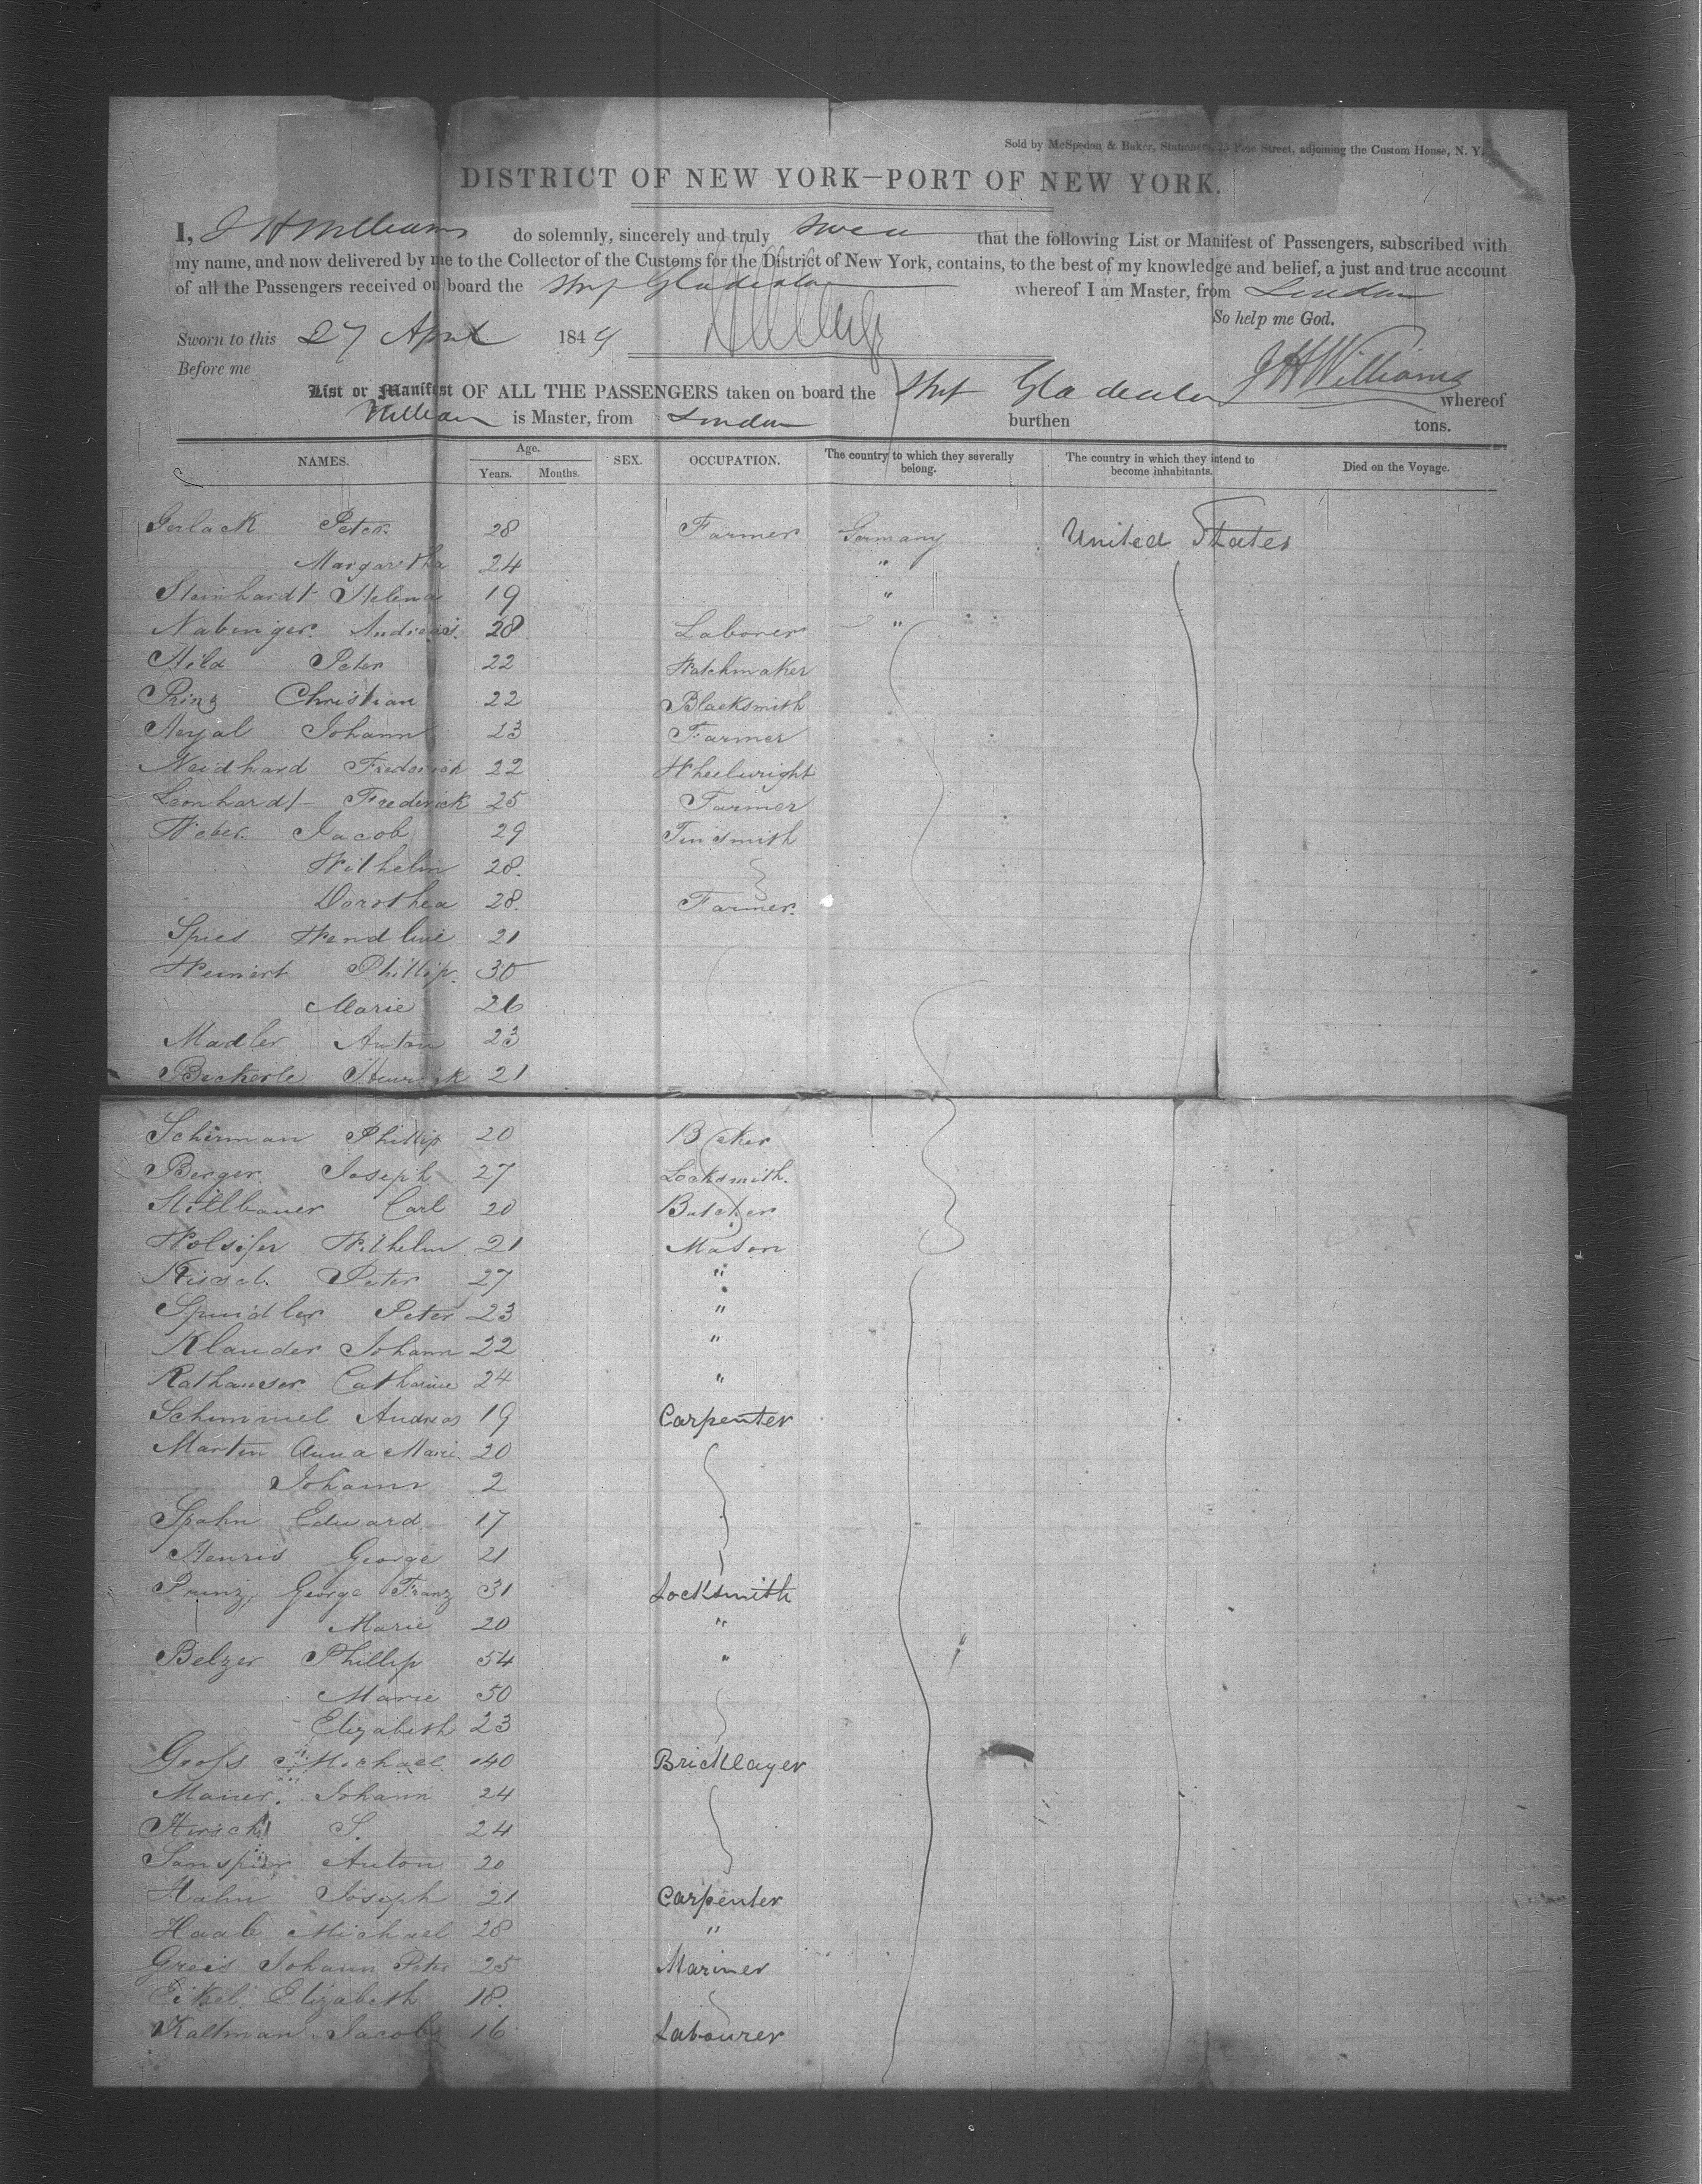 Sold by McSpedon & Baker, Stationers, 25 Pine Street, adjoining the Custom House, N. Y.
DISTRICT OF NEW YORK—PORT OF NEW YORK.
I, J H Williams do solemnly, sincerely and truly swear that the following List or Manifest of Passengers, subscribed with
my name, and now delivered by me to the Collector of the Customs for the District of New York, contains, to the best of my knowledge and belief, a just and true account
of all the Passengers received on board the Ship Gladiator whereof I am Master, from London
So help me God.
Sworn to this 27 April 1849
Before me
J H Williams
List or Manifest OF ALL THE PASSENGERS taken on board the Ship Gladiator whereof
William is Master, from London burthen tons.
NAMES. Age. Years. Months. SEX. OCCUPATION. The country to which they severally belong. The country in which they intend to become inhabitants. Died on the Voyage.
Gerlack Peter 28 Farmer Germany United States
Margaretha 24 "
Steinhardt Helena 19 "
Nabinger Andreas 28 Laborer "
Hild Peter 22 Watchmaker
Prinz Christian 22 Blacksmith
Johann 23 Farmer
Neidhard Frederick 22 Wheelwright
Leonhardt Frederick 25 Farmer
Weber Jacob 29 Tinsmith
Wilhelm 28.
Dorothea 28. Farmer.
Spies Wendline 21
Weinert Phillip. 30
Marie 26
Madler Anton 23
Beckerle 21
Scherman Phillip 20 Baker
Berger Joseph 27 Locksmith.
Stillbauer Carl 20 Butcher
Wolsifer Wilhelm 21 Mason
Peter 27 "
Spindler Peter 23 "
Klauder Johann 22 "
Rathauser Catharine 24 "
Schimmel Andreas 19 Carpenter
Martin Anna Marie 20
Johann 2
Spahn Edward 17
Henris George 21
Prinz, George Franz 31 Locksmith
Marie 20 "
Belzer Phillip 54 "
Marie 50
Elizabeth 23
Groß Michael 40 Bricklayer
Johann 24
Hirsch S. 24
Anton 20
Hahn Joseph 21 Carpenter
Haab Michael 28 "
Greis Johann Peter 25 Mariner
Eikel Elizabeth 18.
Kaltman Jacob 16 Labourer